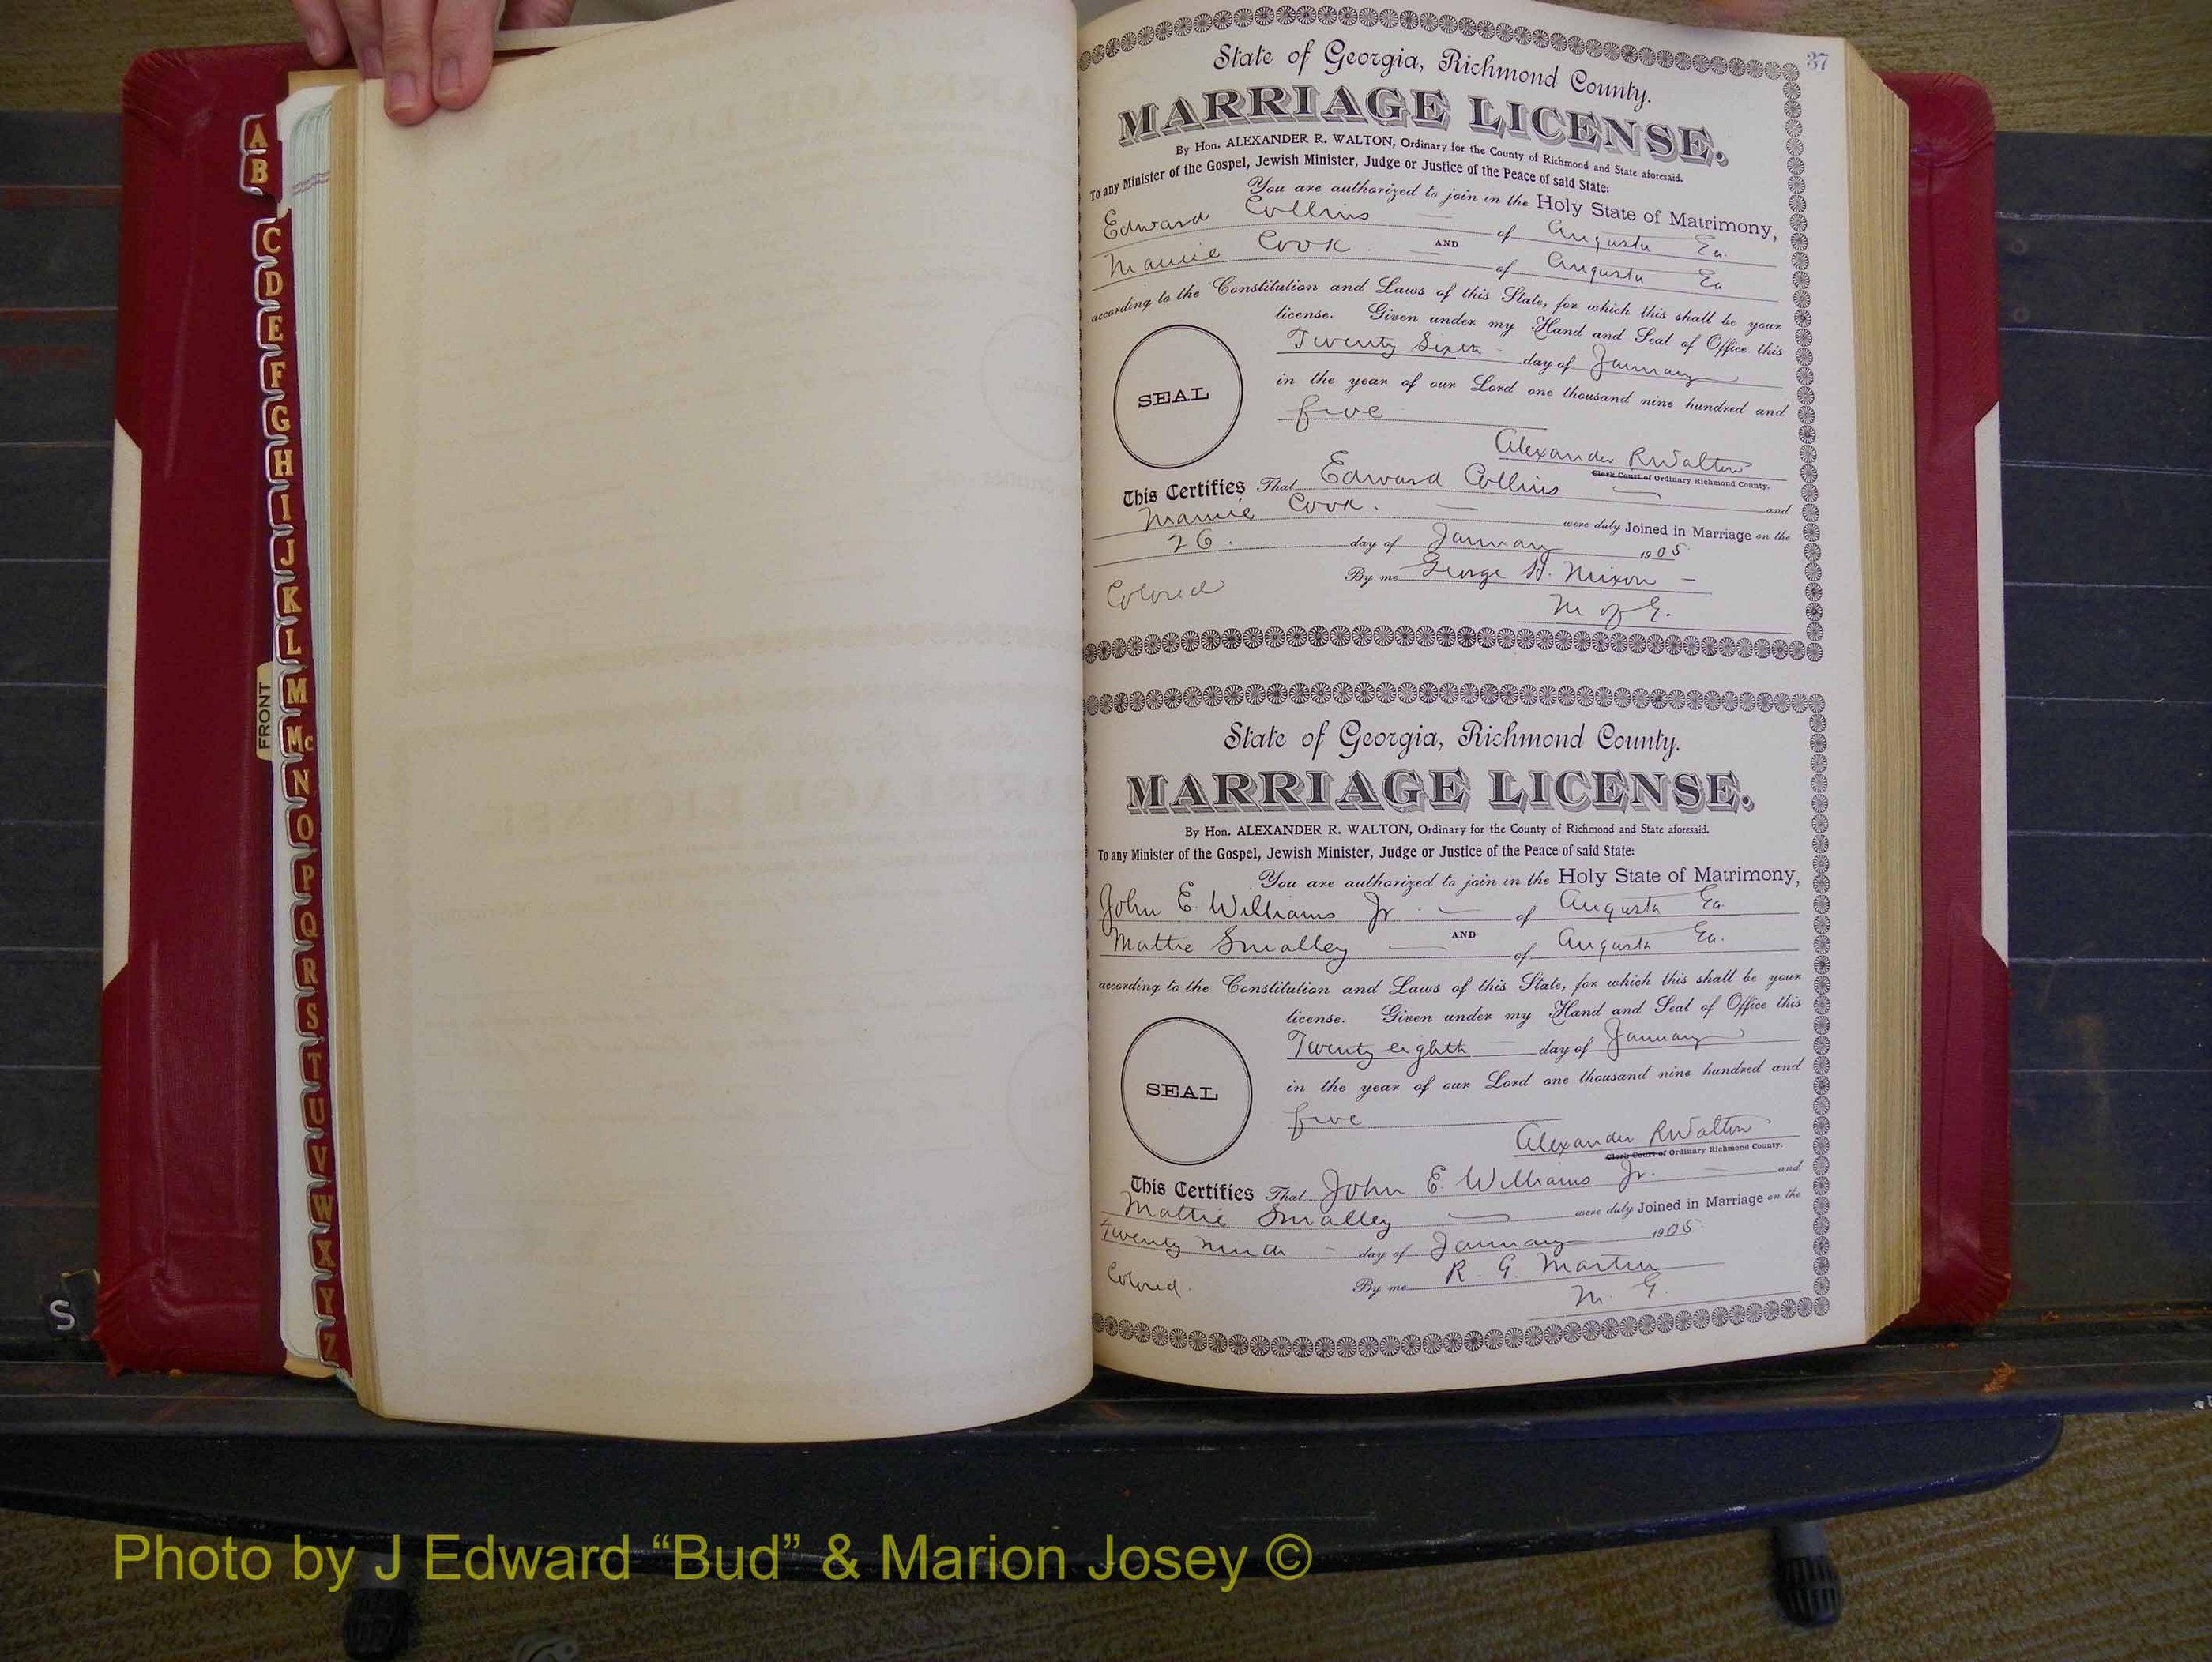 37
State of Georgia, Richmond County.
MARRIAGE LICENSE.
By Hon. ALEXANDER R. WALTON, Ordinary for the County of Richmond and State aforesaid.
To any Minister of the Gospel, Jewish Minister, Judge or Justice of the Peace of said State:
You are authorized to join in the Holy State of Matrimony,
Edward Collins of Augusta Ga.
AND
Mamie Cook of Augusta Ga
according to the Constitution and Laws of this State, for which this shall be your
license. Given under my Hand and Seal of Office this
Twenty Sixth day of January
in the year of our Lord one thousand nine hundred and
five
SEAL
Alexander R Walton
Clerk Court of Ordinary Richmond County.
This Certifies That Edward Collins and
Mamie Cook. were duly Joined in Marriage on the
26. day of January 1905
By me George H. Nixon
Colored
M of G.
State of Georgia, Richmond County.
MARRIAGE LICENSE.
By Hon. ALEXANDER R. WALTON, Ordinary for the County of Richmond and State aforesaid.
To any Minister of the Gospel, Jewish Minister, Judge or Justice of the Peace of said State:
You are authorized to join in the Holy State of Matrimony,
John E. Williams Jr. of Augusta Ga.
AND
Mattie Smalley of Augusta Ga.
according to the Constitution and Laws of this State, for which this shall be your
license. Given under my Hand and Seal of Office this
Twenty eighth day of January
in the year of our Lord one thousand nine hundred and
five
SEAL
Alexander R Walton
Clerk Court of Ordinary Richmond County.
This Certifies That John E. Williams Jr. and
Mattie Smalley were duly Joined in Marriage on the
Twenty ninth day of January 1905
By me R. G. Martin
Colored.
M. G.
A
B
C
D
E
F
G
H
I
J
K
L
M
Mc
N
O
P
Q
R
S
T
U
V
W
X
Y
Z
FRONT
S
Photo by J Edward “Bud” & Marion Josey ©